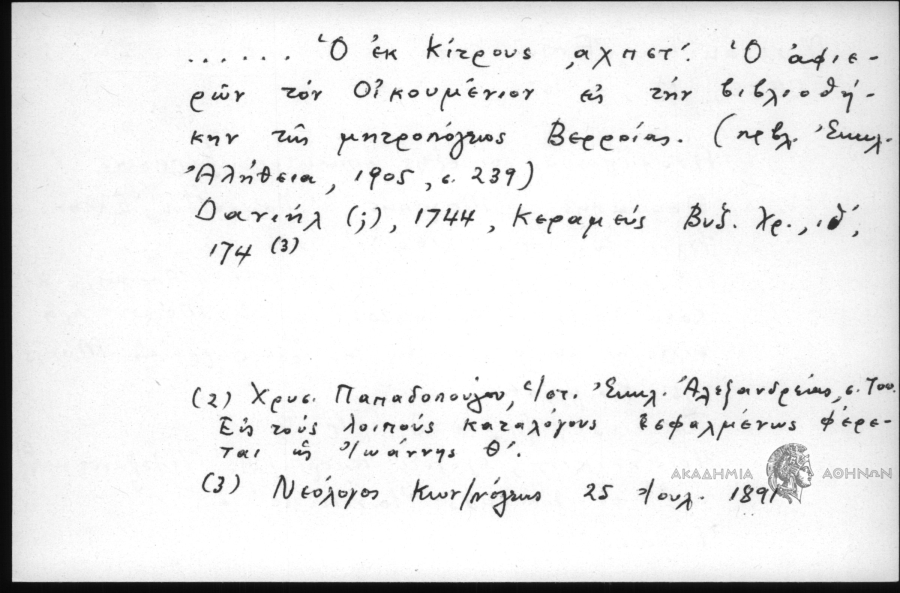 ...... Ὁ ἐκ Κίτρους ,αχπστ΄. Ὁ ἀφιε-
ρῶν τὸν Οἰκουμένιον εἰς τὴν βιβλιοθή-
κην τῆς μητροπόλεως Βερροίας. (πρβλ. Ἐκκλ.
Ἀλήθεια, 1905, σ. 239)
Δανιήλ (;), 1744, Κεραμεύς Βυζ. Χρ., ιθ΄,
174 (3)
(2) Χρυσ. Παπαδοπούλου, Ἱστ. Ἐκκλ. Ἀλεξανδρείας, σ.
Εἰς τοὺς λοιποὺς καταλόγους ἐσφαλμένως φέρε-
ται ὡς Ἰωάννης Θ΄.
(3) Νεόλογος Κων/πόλεως 25 Ἰουλ. 1891
ΑΚΑΔΗΜΙΑ ΑΘΗΝΩΝ